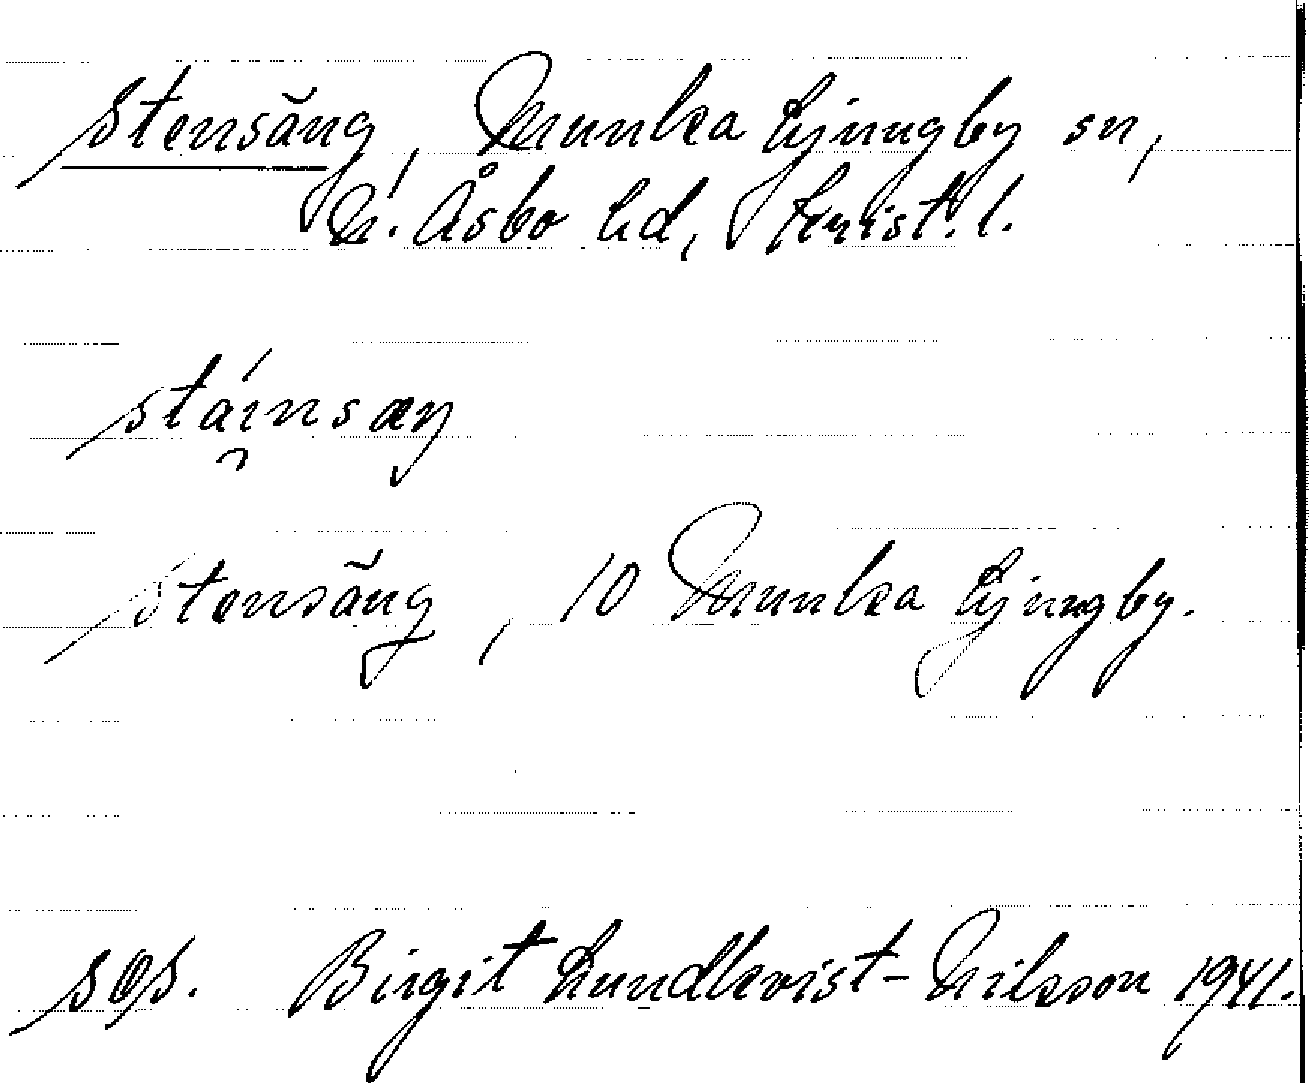 Stensäng, Munka Ljungby sn,
N. Åsbo hd, Krist. l.
stáinsæŋ
Stensäng, 10 Munka Ljungby.
Birgit Lundkvist-Nilsson 1941.